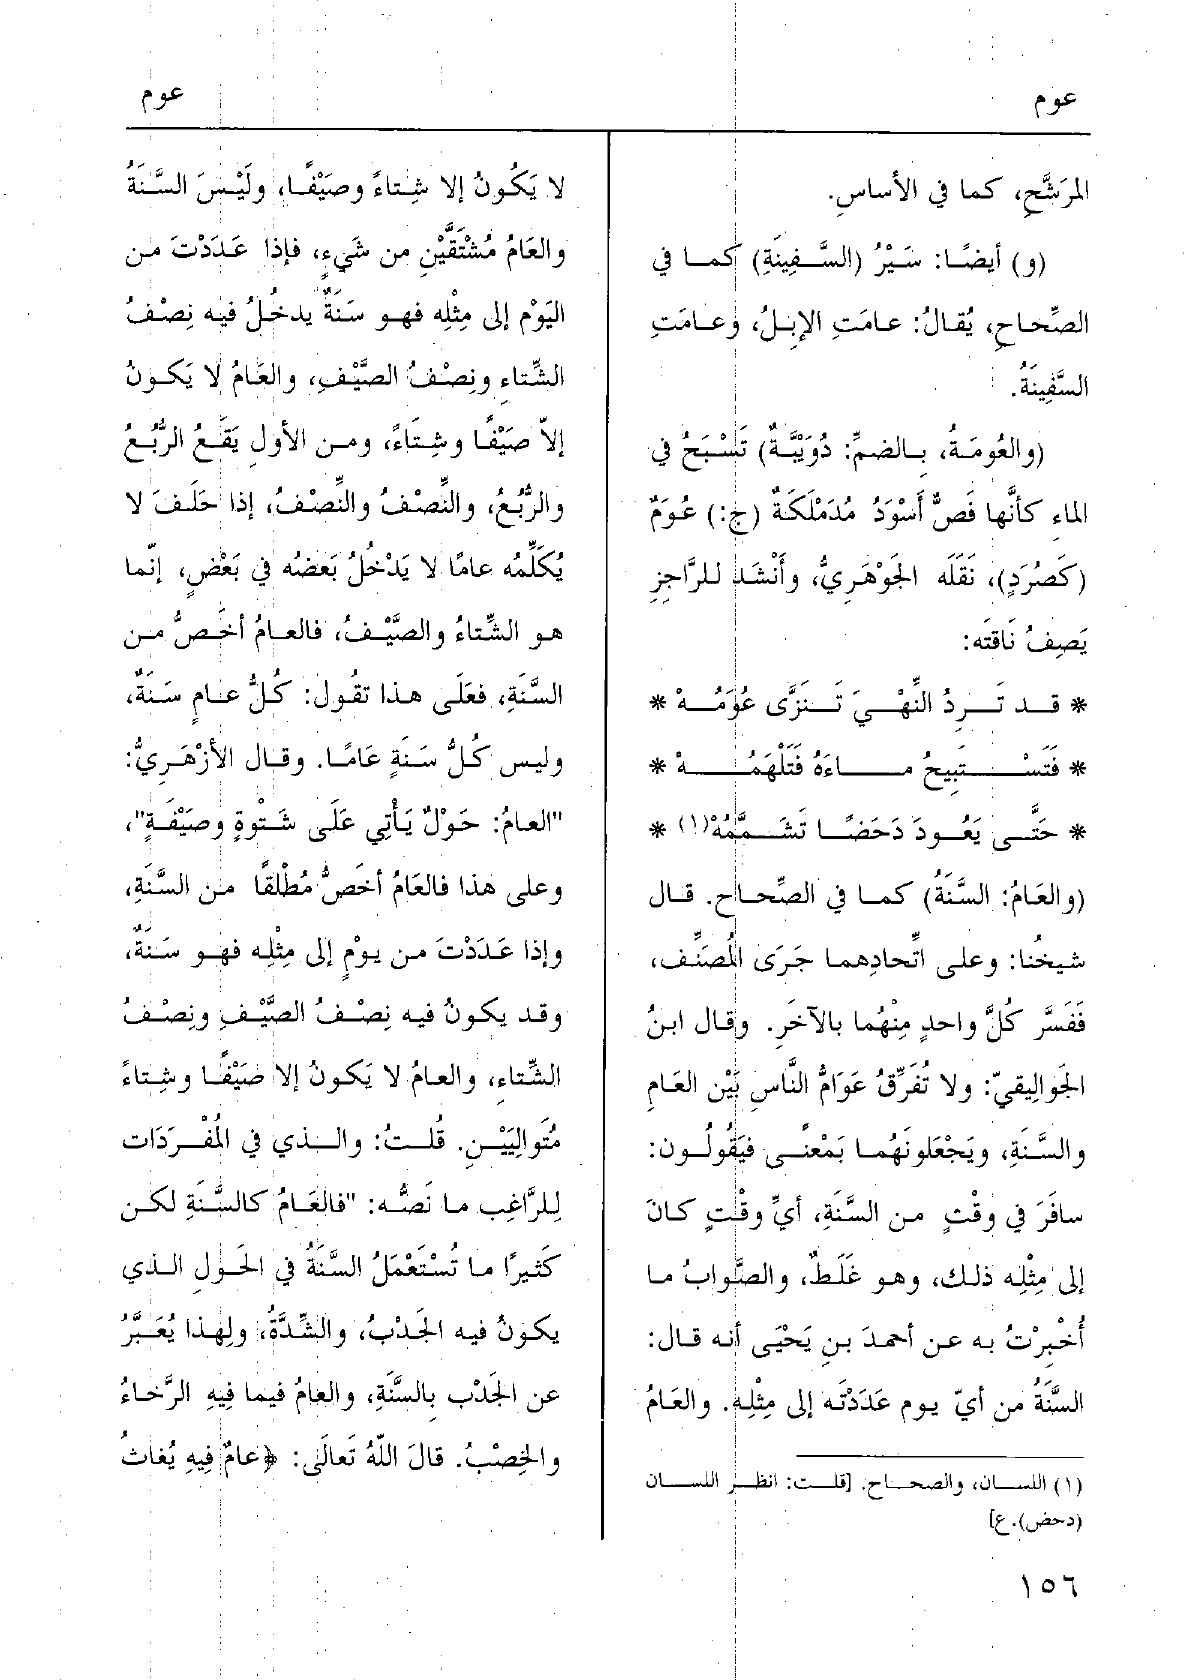 عوم
عوم
المرَشَّحِ، كما في الأساسِ.
(و) أيضًا: سَيْرُ (السَّفِينَةِ) كما في
الصِّحاحِ، يُقالُ: عامَتِ الإبِلُ، وعامَتِ
السَّفِينَةُ.
(والعُومَةُ، بالضمِّ: دُوَيْبَّةٌ) تَسْبَحُ في
الماء كأنَّها فَصٌّ أَسْوَدُ مُدَمْلَكَةٌ (ج:) عُوَمٌ
(كَصُرَدٍ)، نَقَلَه الجَوْهَرِيُّ، وأَنْشَدَ للرَّاجِزِ
يَصِفُ نَاقَتَه:
* قد تَرِدُ النِّهْيَ تَنَزَّى عُوَمُهْ *
* فَتَسْتَبِيحُ مَاءَهُ فَتَلْهَمُهْ *
* حَتَّى يَعُودَ دَحَضًا تَشَمَّمُهْ(١) *
(والعَامُ: السَّنَةُ) كما في الصِّحاح. قال
شيخُنا: وعلى اتِّحادِهما جَرَى المُصَنِّف،
فَفَسَّر كُلَّ واحدٍ مِنْهُما بالآخَرِ. وقال ابنُ
الجَوالِيقيّ: ولا تُفَرِّقُ عَوَامُّ النَّاسِ بَيْن العَامِ
والسَّنَةِ، ويَجْعَلونَهُما بَمْعنًى فيَقُولُون:
سافَرَ في وقْتٍ من السَّنَةِ، أيِّ وقْتٍ كانَ
إلى مِثْلِه ذلك، وهو غَلَطٌ، والصَّوابُ ما
أُخْبِرْتُ به عن أحمدَ بنِ يَحْيَى أنه قال:
السَّنَةُ من أيّ يوم عَدَدْتَه إلى مِثْلِه. والعَامُ
(١) اللسان، والصحاح. [قلت: انظر اللسان
(دحض).ع]
لا يَكُونُ إلا شِتاءً وصَيْفًا، ولَيْسَ السَّنَةُ
والعَامُ مُشْتَقَّيْنِ من شَيءٍ، فإذا عَدَدْتَ من
اليَوْم إلى مِثْلِه فهو سَنَةٌ يدخُلُ فيه نِصْفُ
الشِّتاءِ ونِصْفُ الصَّيْفِ، والعَامُ لا يَكُونُ
إلاّ صَيْفًا وشِتَاءً، ومن الأولِ يَقَعُ الرُّبُعُ
والرُّبُعُ، والنِّصْفُ والنِّصْفُ، إذا حَلَفَ لا
يُكَلِّمُه عامًا لا يَدْخُلُ بَعضُه في بَعْضٍ، إنّما
هو الشِّتاءُ والصَّيْفُ، فالعامُ أخَصُّ من
السَّنَةِ، فعَلَى هذا تقول: كُلُّ عامٍ سَنَةٌ،
وليس كُلُّ سَنَةٍ عَامًا. وقال الأزْهَرِيُّ:
"العامُ: حَوْلٌ يَأْتِي عَلَى شَتْوةٍ وصَيْفَةٍ"،
وعلى هذا فالعَامُ أخَصُّ مُطْلَقًا من السَّنَةِ،
وإذا عَدَدْتَ من يوْمٍ إلى مِثْلِه فهو سَنَةٌ،
وقد يكونُ فيه نِصْفُ الصَّيْفِ ونِصْفُ
الشِّتاءِ، والعامُ لا يَكونُ إلا صَيْفًا وشِتاءً
مُتَوالِيَيْنِ. قُلتُ: والذي في المُفْرَدَات
لِلرَّاغِبِ ما نَصُّه: "فالعَامُ كالسَّنَةِ لكن
كَثيرًا ما تُسْتَعْمَلُ السَّنَةُ في الحَولِ الذي
يكونُ فيه الجَدْبُ، والشِّدَّةُ، ولِهذا يُعَبَّرُ
عن الجَدْب بالسَّنَةِ، والعامُ فيما فِيهِ الرَّخاءُ
والخِصْبُ. قالَ اللهُ تَعالَى: ﴿عامٌ فِيهِ يُغاثُ
١٥٦